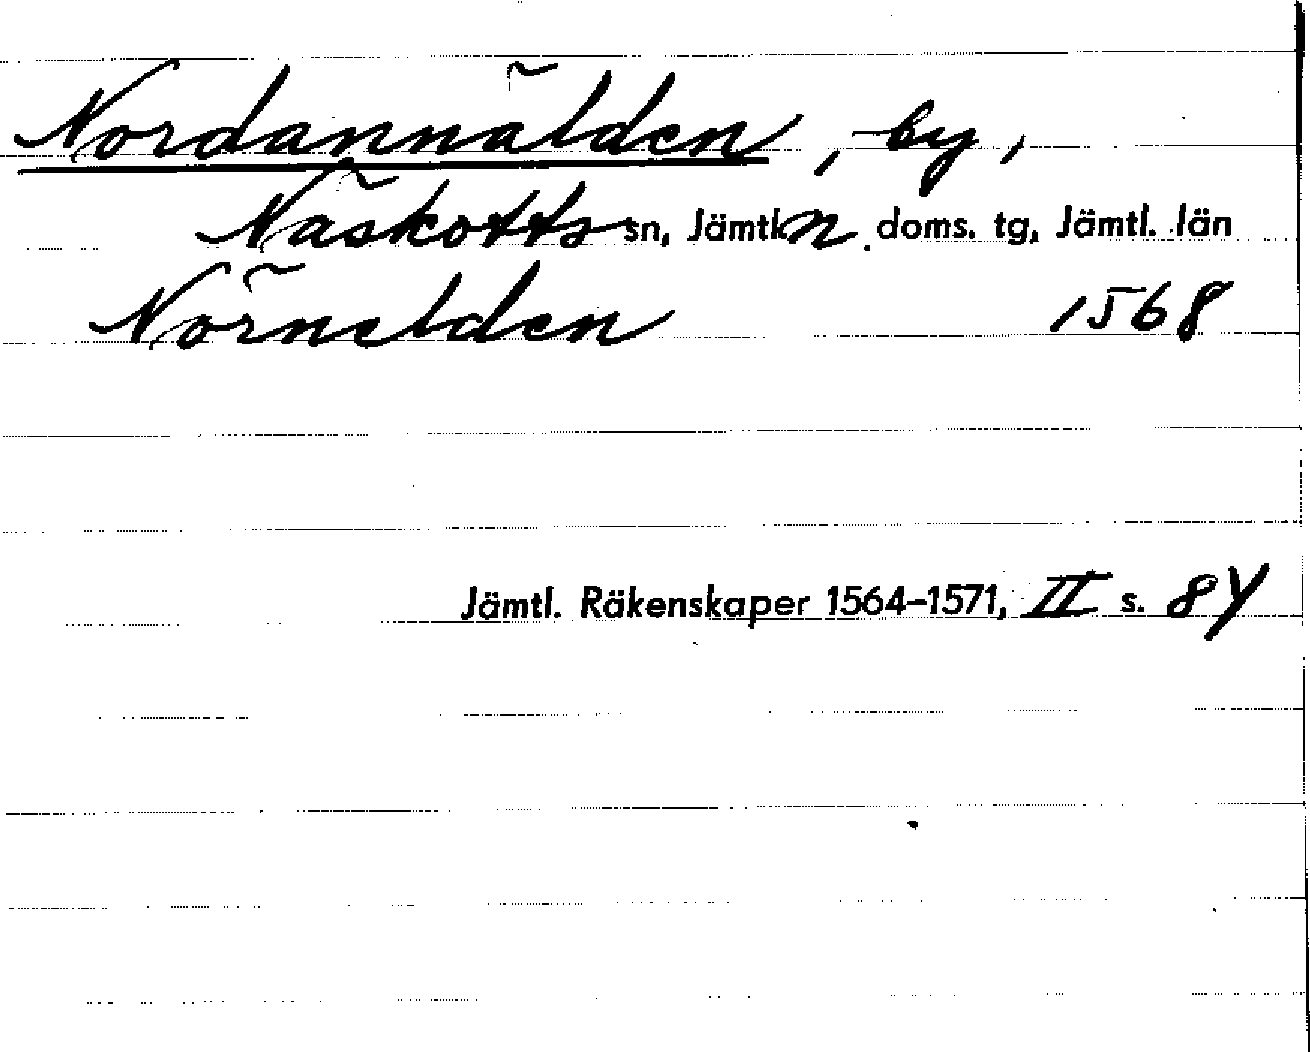 Nordannälden, by,
Näskotts sn, Jämtl. n doms. tg, Jämtl. län
Nörnelden 1568
Jämtl. Räkenskaper 1564-1571, II s. 84